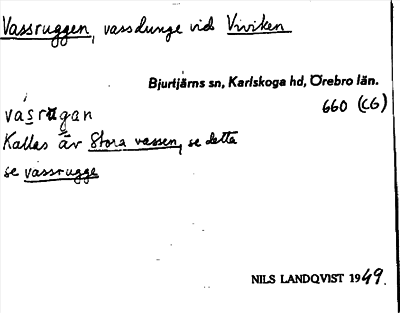 Vassruggen, vassdunge vid Viviken
Bjurtjärns sn, Karlskoga hd, Örebro län.
660 (CG)
vásrùgan
Kallas äv Stora vassen, se detta
se vassrugge
NILS LANDQVIST 1949.